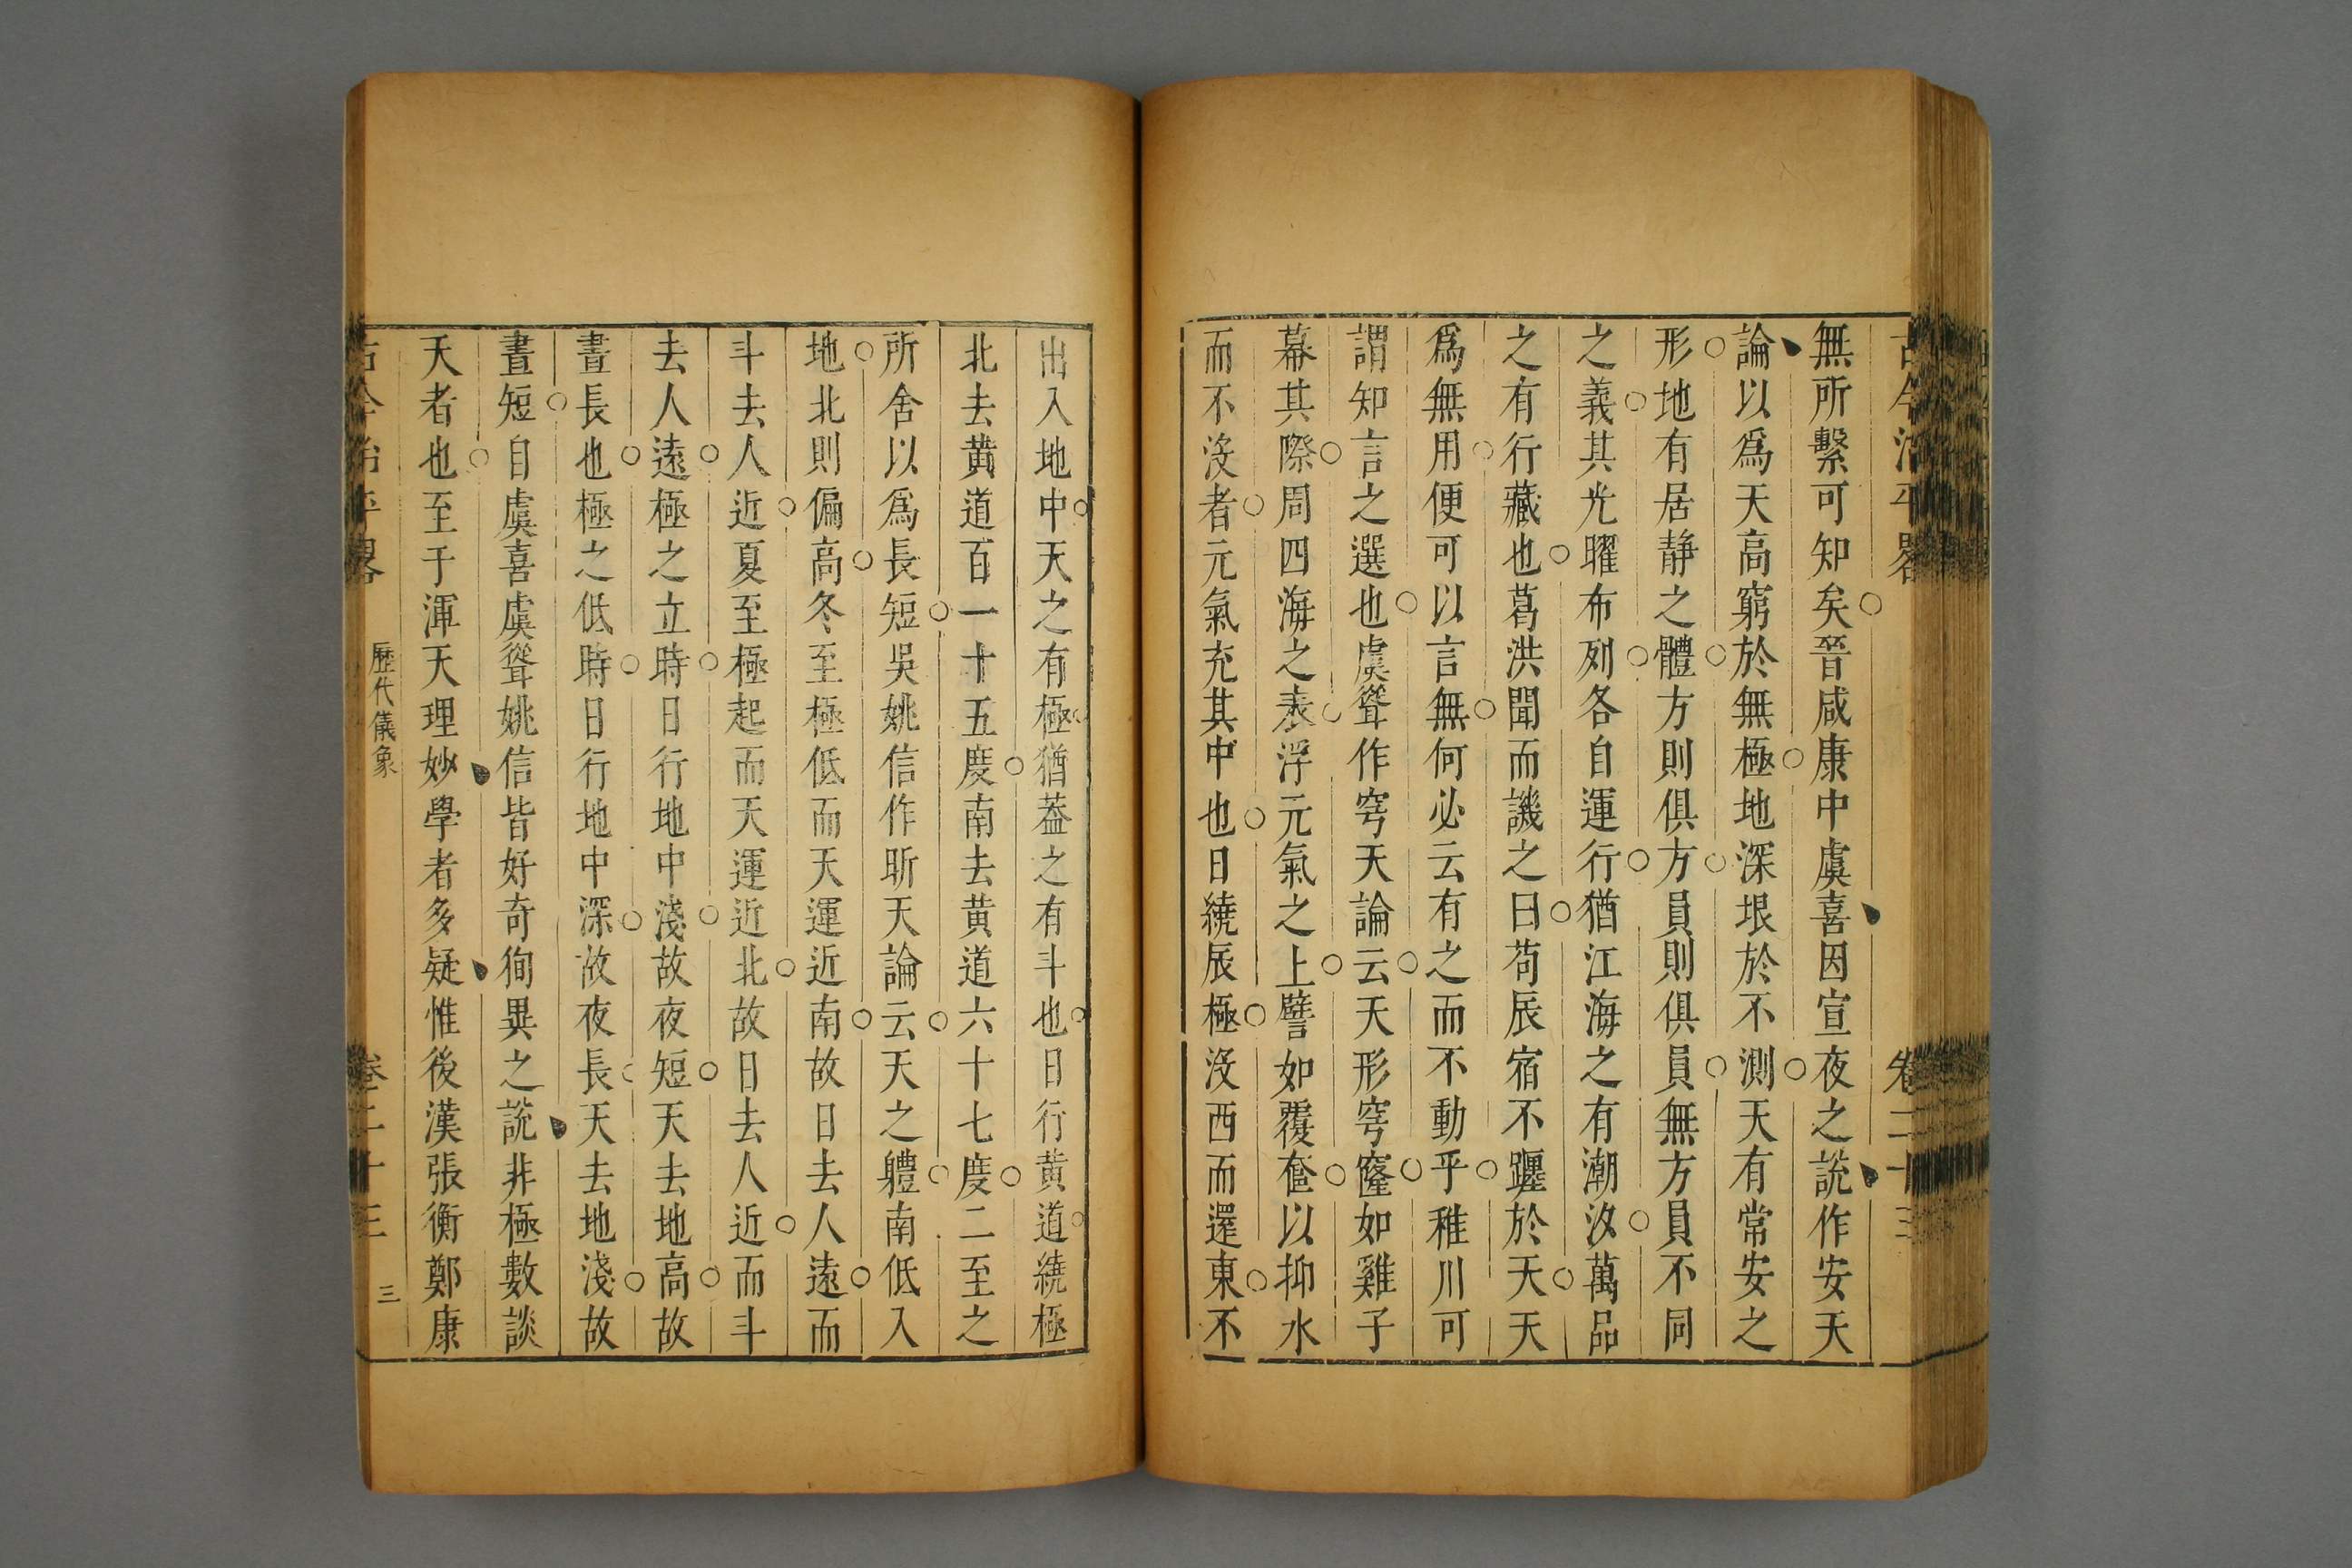 古今治平畧 卷二十三
無所繫可知矣晉咸康中虞喜因宣夜之説作安天
論以爲天高窮於無極地深垠於不測天有常安之
形地有居静之體方則俱方員則俱員無方員不同
之義其光曜布列各自運行猶江海之有潮汐萬品
之有行藏也葛洪聞而譏之曰苟辰宿不躔於天天
爲無用便可以言無何必云有之而不動乎稚川可
謂知言之選也虞聳作穹天論云天形穹窿如雞子
幕其際周四海之表浮元氣之上譬如覆奩以抑水
而不沒者元氣充其中也日繞辰極沒西而還東不
出入地中天之有極猶蓋之有斗也日行黄道繞極
北去黄道百一十五度南去黄道六十七度二至之
所舍以爲長短吳姚信作昕天論云天之軆南低入
地北則偏高冬至極低而天運近南故日去人遠而
斗去人近夏至極起而天運近北故日去人近而斗
去人遠極之立時日行地中淺故夜短天去地高故
晝長也極之低時日行地中深故夜長天去地淺故
晝短自虞喜虞聳姚信皆好奇徇異之説非極數談
天者也至于渾天理妙學者多疑惟後漢張衡鄭康
古今治平畧 歷代儀象 卷二十三 三